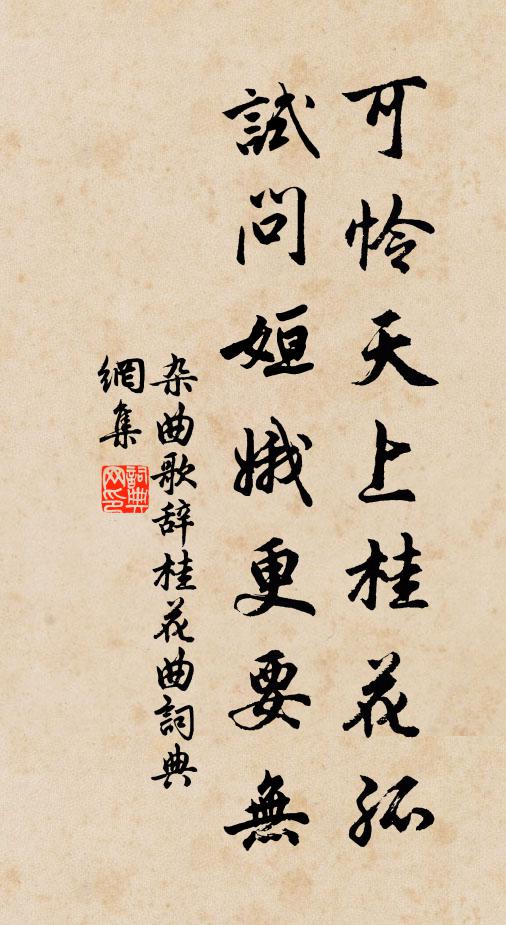 可怜天上桂花孤
試問姮娥更要無
杂曲歌辞桂花曲詞典
網集
詞典
网印